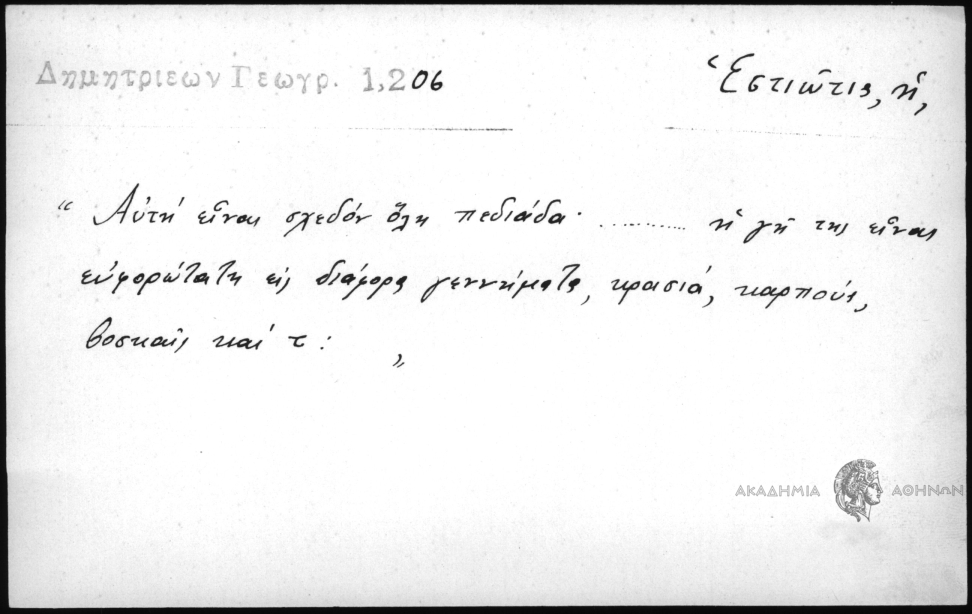 Δημητριεων Γεωγρ. 1,206
Ἑστιῶτις, ἡ,
“ Αὐτή εἶναι σχεδόν ὅλη πεδιάδα· ............ ἡ γῆ της εἶναι
εὐφορώτατη εἰς διάφορα γεννήματα, κρασιά, καρπούς,
βοσκαῖς καί τ : „
ΑΚΑΔΗΜΙΑ ΑΘΗΝΩΝ